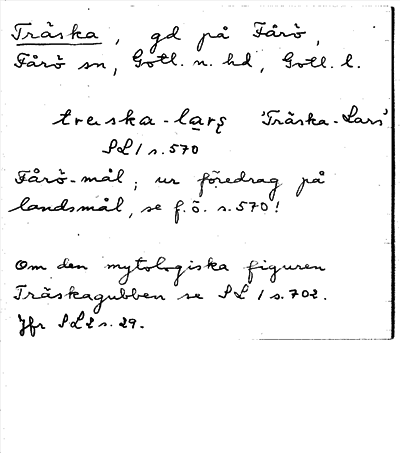 Träska, gd på Fårö,
Fårö sn, Gotl. n. hd, Gotl. l.
treska-larş 'Träska-Lars'
SL 1 s. 570
Fårö-mål; ur föredrag på
landsmål, se f.ö. s. 570!
Om den mytologiska figuren
Träskagubben se SL 1 s. 702.
Jfr SL 2 s. 29.